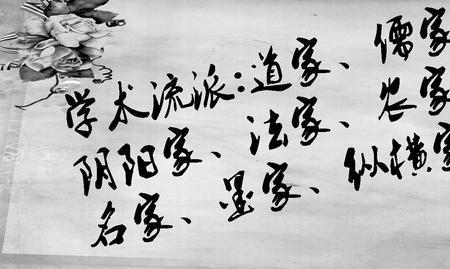 学术流派:道家、儒家
阴阳家、法家、农家
名家、墨家、纵横家